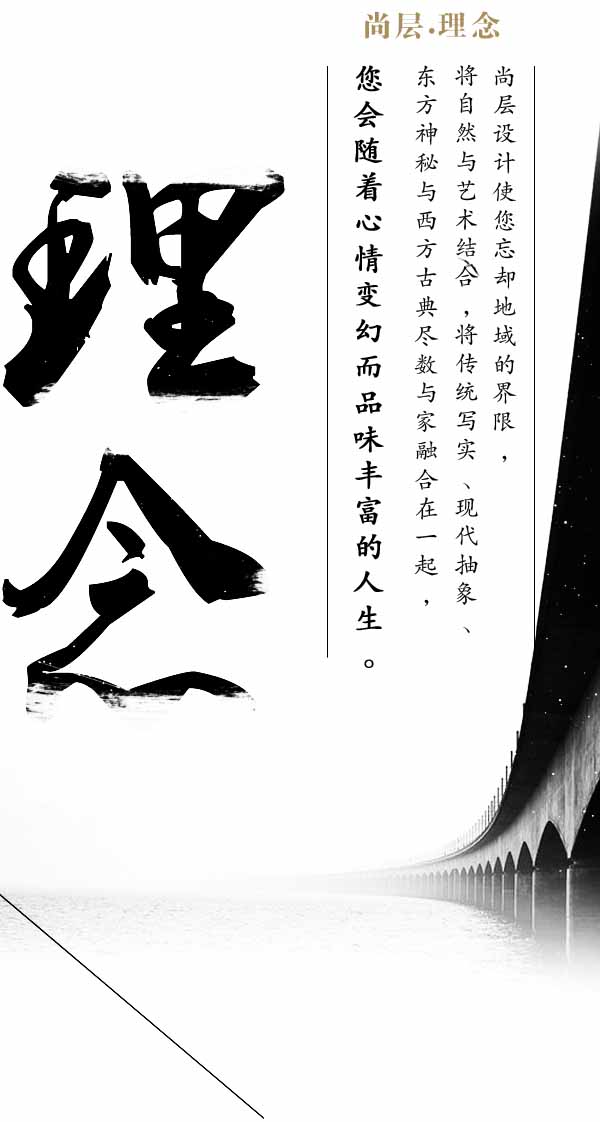 尚层.理念
尚层设计使您忘却地域的界限，
将自然与艺术结合，将传统写实、现代抽象、
东方神秘与西方古典尽数与家融合在一起，
您会随着心情变幻而品味丰富的人生。
理念